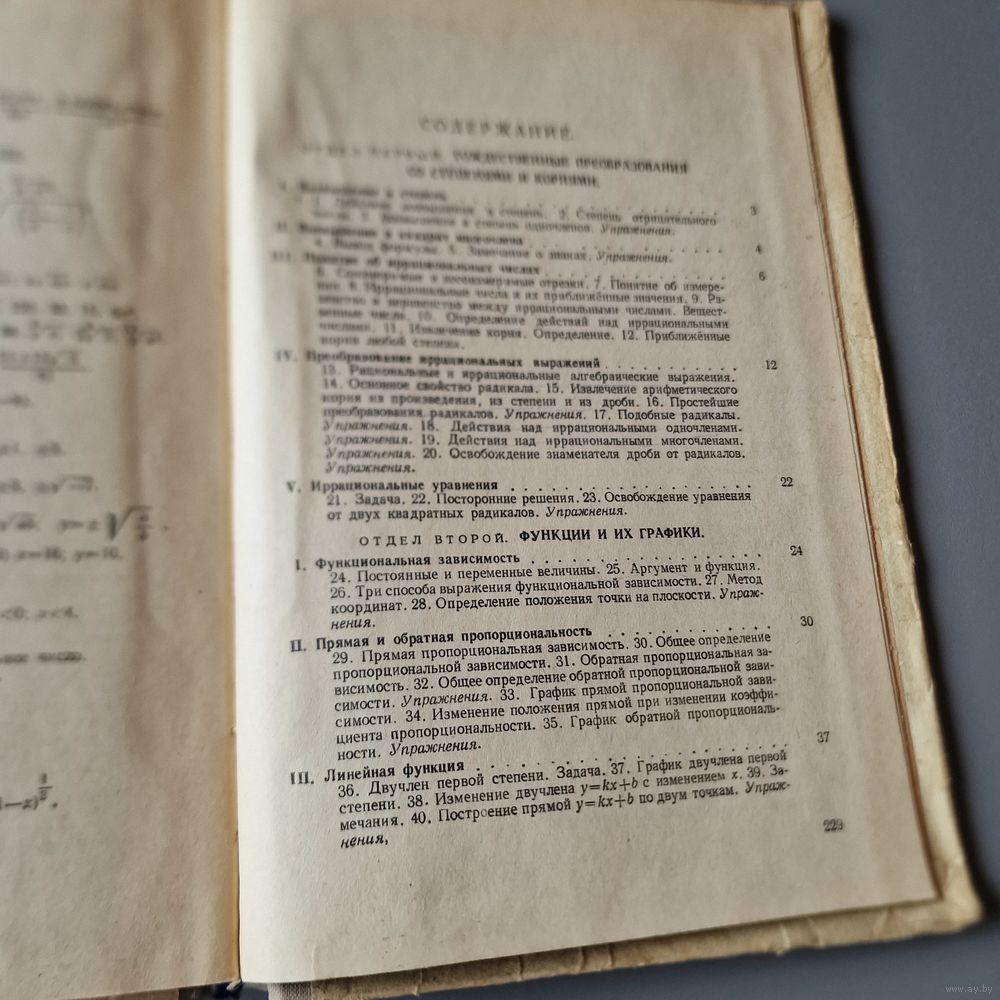 СОДЕРЖАНИЕ.
ТОЖДЕСТВЕННЫЕ ПРЕОБРАЗОВАНИЯ
СО СТЕПЕНЯМИ И КОРНЯМИ.
I. Возвышение в степень.
в степень. 2. Степень отрицательного 3
числа. 3. Возвышение в степень одночленов. Упражнения.
II. Возвышение в квадрат многочлена
4. Вывод формулы. 5. Замечание о знаках. Упражнения. 4
III. Понятие об иррациональных числах
6. Соизмеримые и несоизмеримые отрезки. 7. Понятие об измере- 6
нии. 8. Иррациональные числа и их приближённые значения. 9. Ра-
венство и неравенство между иррациональными числами. Вещест-
венные числа. 10. Определение действий над иррациональными
числами. 11. Извлечение корня. Определение. 12. Приближённые
корни любой степени.
IV. Преобразование иррациональных выражений . . . . . . . . . . 12
13. Рациональные и иррациональные алгебраические выражения.
14. Основное свойство радикала. 15. Извлечение арифметического
корня из произведения, из степени и из дроби. 16. Простейшие
преобразования радикалов. Упражнения. 17. Подобные радикалы.
Упражнения. 18. Действия над иррациональными одночленами.
Упражнения. 19. Действия над иррациональными многочленами.
Упражнения. 20. Освобождение знаменателя дроби от радикалов.
Упражнения.
V. Иррациональные уравнения . . . . . . . . . . . . . . . . . 22
21. Задача. 22. Посторонние решения. 23. Освобождение уравнения
от двух квадратных радикалов. Упражнения.
ОТДЕЛ ВТОРОЙ. ФУНКЦИИ И ИХ ГРАФИКИ.
I. Функциональная зависимость . . . . . . . . . . . . . . . . 24
24. Постоянные и переменные величины. 25. Аргумент и функция.
26. Три способа выражения функциональной зависимости. 27. Метод
координат. 28. Определение положения точки на плоскости. Упраж-
нения.
II. Прямая и обратная пропорциональность . . . . . . . . . . . 30
29. Прямая пропорциональная зависимость. 30. Общее определение
пропорциональной зависимости. 31. Обратная пропорциональная за-
висимость. 32. Общее определение обратной пропорциональной зави-
симости. Упражнения. 33. График прямой пропорциональной зави-
симости. 34. Изменение положения прямой при изменении коэффи-
циента пропорциональности. 35. График обратной пропорциональ-
ности. Упражнения.
III. Линейная функция . . . . . . . . . . . . . . . . . . . . . 37
36. Двучлен первой степени. Задача. 37. График двучлена первой
степени. 38. Изменение двучлена y=kx+b с изменением x. 39. За-
мечания. 40. Построение прямой y=kx+b по двум точкам. Упраж-
нения,
229
www.ay.by